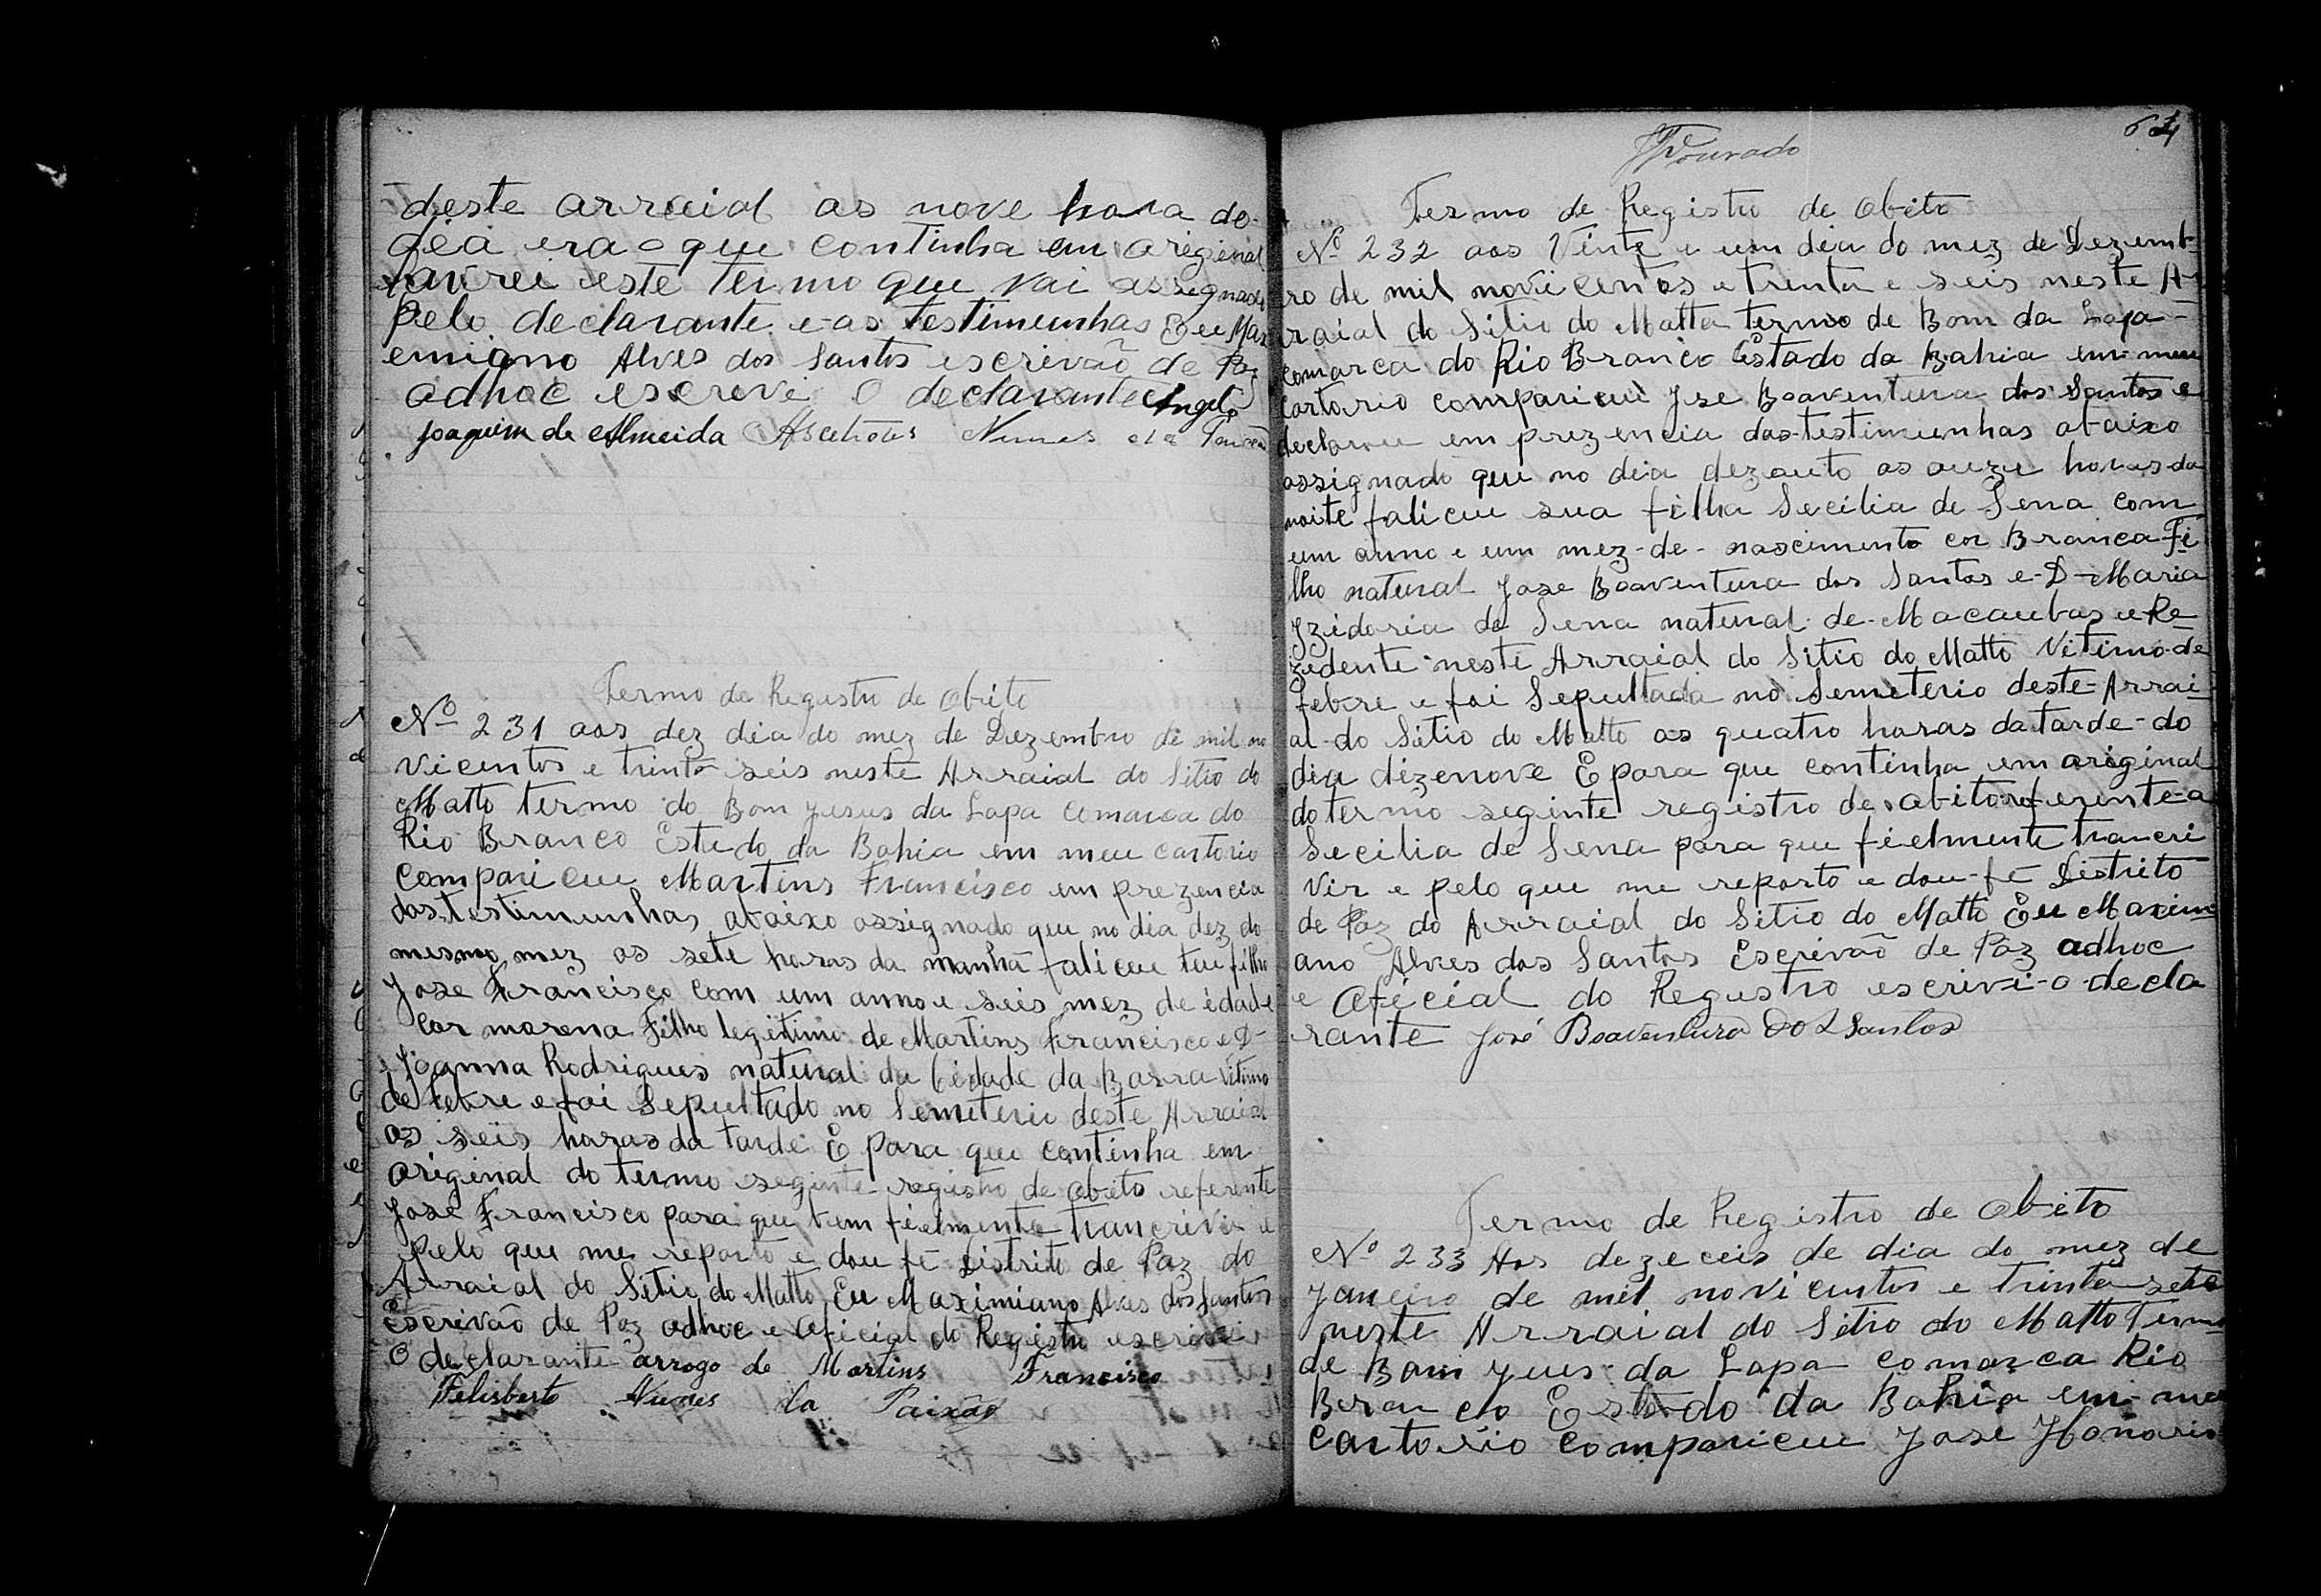 deste arraial as nove hora do
dia era o que continha em original
lavrei este termo que vai assignado
pelo declarante e as testimunhas Eu Max
emiano Alves dos Santos escrivão de Paz
adhoc escrevi O declarante Angelo
Joaquim de Almeida Nunes da
Termo de Registro de Obito
Nº 231 aos dez dia do mez de Dezembro de mil no
vicentos e trinta seis neste Arraial do Sitio do
Matto termo do Bom Jesus da Lapa comarca do
Rio Branco Estado da Bahia em meu cartorio
compariceu Martins Francisco em prezencia
das testimunhas abaixo assignado que no dia dez do
mesmo mez as sete horas da manhã faliceu teu filho
Jose Francisco com um anno e seis mez de idade
cor morena Filho legitimo de Martins Francisco e D-
Joanna Rodrigues natural da Cidade da Barra Vitimo
de febre e foi Sepultado no Semiterio deste Arraial
as seis horas da tarde E para que continha em
original do termo seginte registro de obito referente
Jose Francisco para que bem fielmente trancrivir e
pelo que me reporto e dou fé Distrito de Paz do
Arraial do Sitio do Matto Eu Maximiano Alves dos Santos
Escrivão de Paz adhoc e Oficial do Registro escrivi
O declarante arrogo de Martins Francisco
Felisberto Nunes la Paixão
64
Dourado
Termo de Registro de Obito
Nº 232 aos Vinte e um dia do mez de Dezemb-
ro de mil novicentos e trinta e seis neste Ar
raial do Sitio do Matto termo de Bom da Lapa-
comarca do Rio Branco Estado da Bahia em meu
Cartorio compariceu Jse Boaventura dos Santos e
declarou em prezencia das testimunhas abaixo
assignado que no dia dezouto as ouze horas da
noite faliceu sua filha Secilia de Sena com
um anno e um mez-de-nascimento cor Branca Fi
lho natural Jose Boaventura dos Santos e-D-Maria
Izidoria de Sena natural de-Macaubas e Re
zedente neste Arraial do Sitio do Matto Vitimo-de
febre e foi Sepultada no Semeterio deste-Arrai
al-do Sitio do Matto as quatro horas da tarde-do
dia dizenove E para que continha em original
do termo seginte registro de obito referente-a
Secilia de Sena para que fielmente trancri
vir e pelo que me reporto e dou-fé Distrito
de Paz do Arraial do Sitio do Matto Eu Maximi
ano Alves dos Santos Escrivão de Paz adhoc
e Oficial do Registro escrivi-o-decla
rante José Boaventura Dos Santos
Termo de Registro de Obito
Nº 233 Aos dezeceis de dia do mez de
Janeiro de mil novicentos e trinta sete
neste Arraial do Sitio do Matto Termo
de Bom Jeus da Lapa comarca Rio
Beranco Estado da Bahia em-meu
cartorio compariceu Jose Honorio